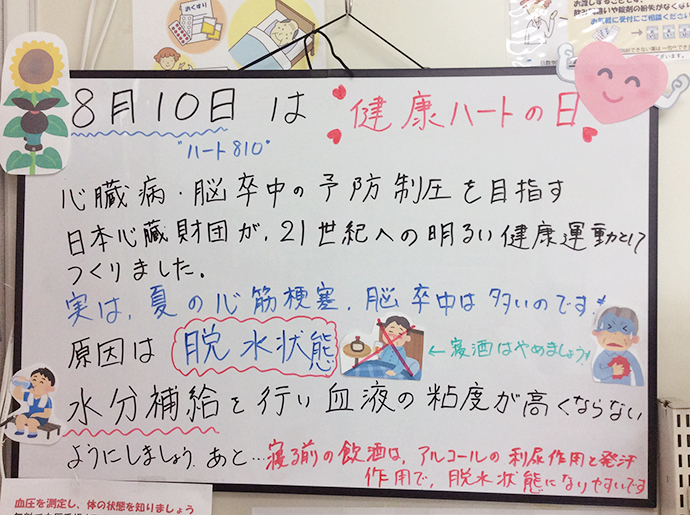 おくすり
お渡しすることです。
8月10日は 健康ハートの日
"ハート810"
心臓病・脳卒中の予防制圧を目指す
日本心臓財団が、21世紀への明るい健康運動として
つくりました。
実は、夏の心筋梗塞、脳卒中は多いのです
原因は 脱水状態 ←寝酒はやめましょう!
水分補給を行い血液の粘度が高くならない
ようにしましょう。あと…寝る前の飲酒は、アルコールの利尿作用と発汗
作用で、脱水状態になりやすいです
血圧を測定し、体の状態を知りましょう